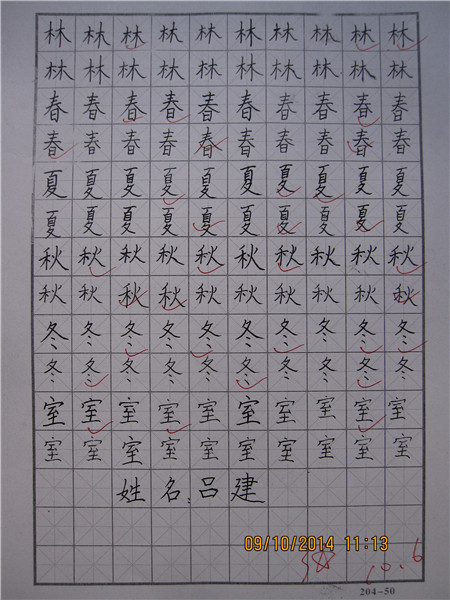 林林林林林林林林林林
林林林林林林林林林林
春春春春春春春春春春
春春春春春春春春春春
夏夏夏夏夏夏夏夏夏夏
夏夏夏夏夏夏夏夏夏夏
秋秋秋秋秋秋秋秋秋秋
秋秋秋秋秋秋秋秋秋秋
冬冬冬冬冬冬冬冬冬冬
冬冬冬冬冬冬冬冬冬冬
室室室室室室室室室室
室室室室室室室室室室
姓名:吕建
09/10/2014 11:13
10.6
204-50